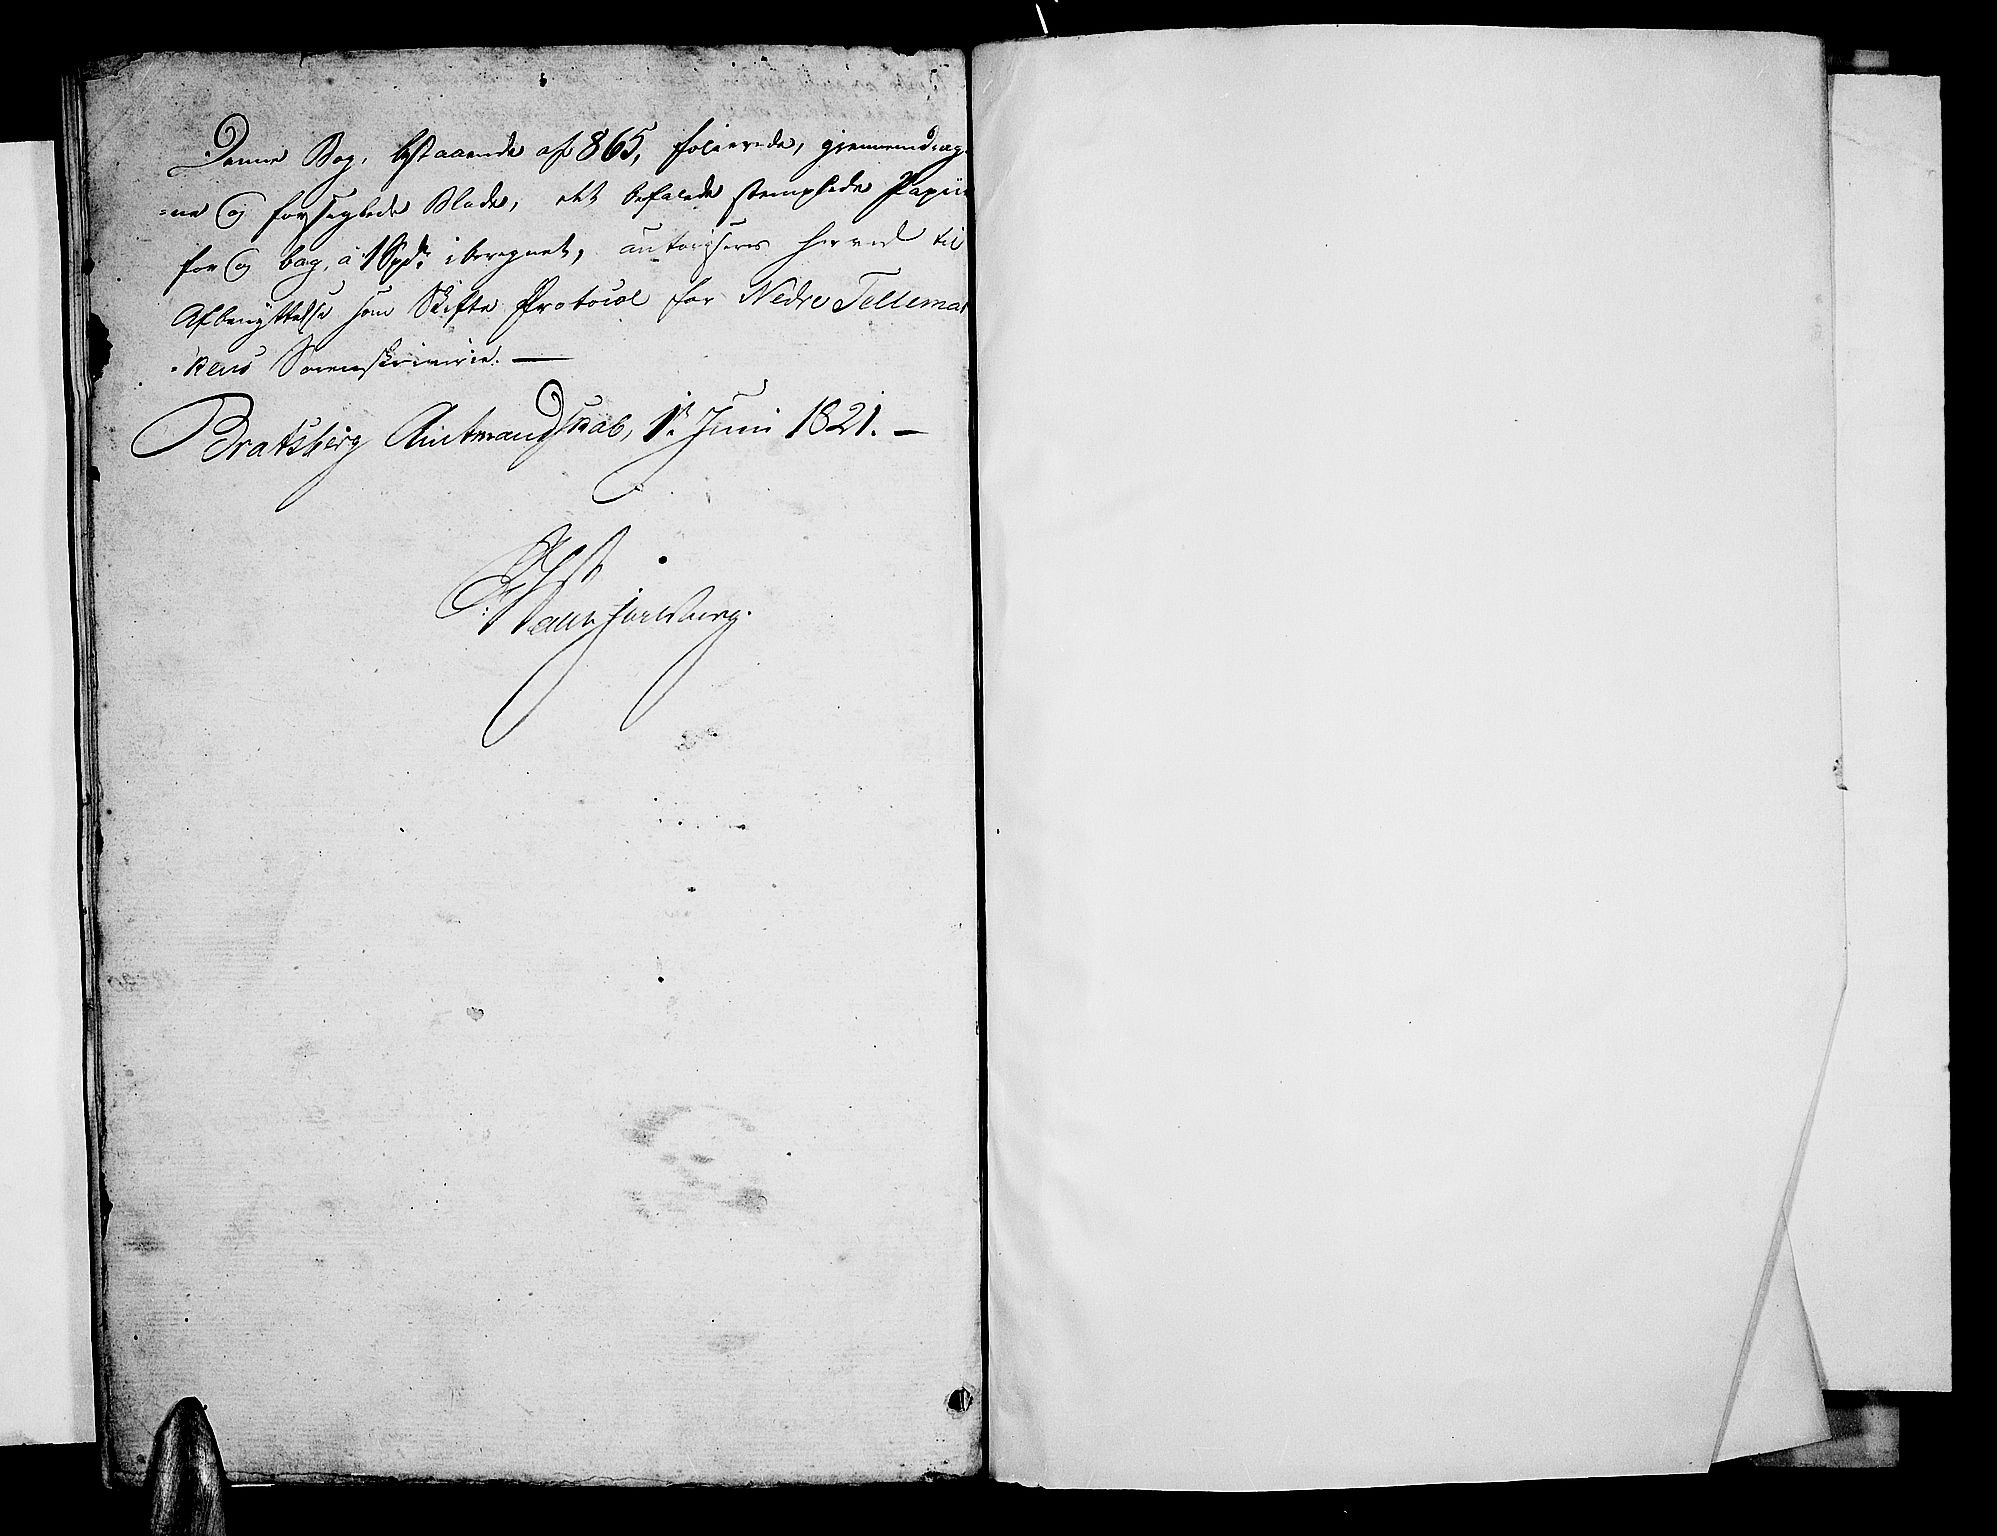 Denne Bog, bestaaende af 865, folierede, gjennemdrag-
=ne og forseglede Blade, det befalede stemplede Papiir
for og bag, à 1 Spd. iberegnet, autoriseres herved til
Afbenyttelse som Skifte Protocol for Nedre Tellemar
=kens Sorenskriverie. —
Bratsberg Amtmandskab, 1te Juni 1821. —